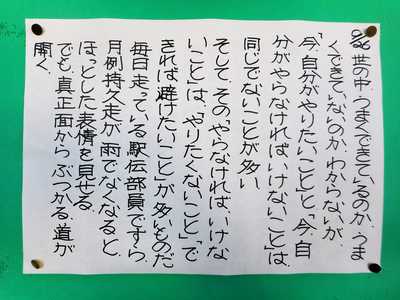 世の中、うまくできているのか、うま
くできていないのか、わからないが、
「今、自分がやりたいこと」と「今、自
分がやらなければいけないこと」は、
同じでないことが多い
そして、その「やらなければ、いけな
いこと」は、「やりたくないこと」「で
きれば避けたいこと」が多いものだ
毎日走っている駅伝部員ですら
月例持久走が雨でなくなると、
ほっとした表情を見せる。
でも、真正面から、ぶつかる、道が
開く。